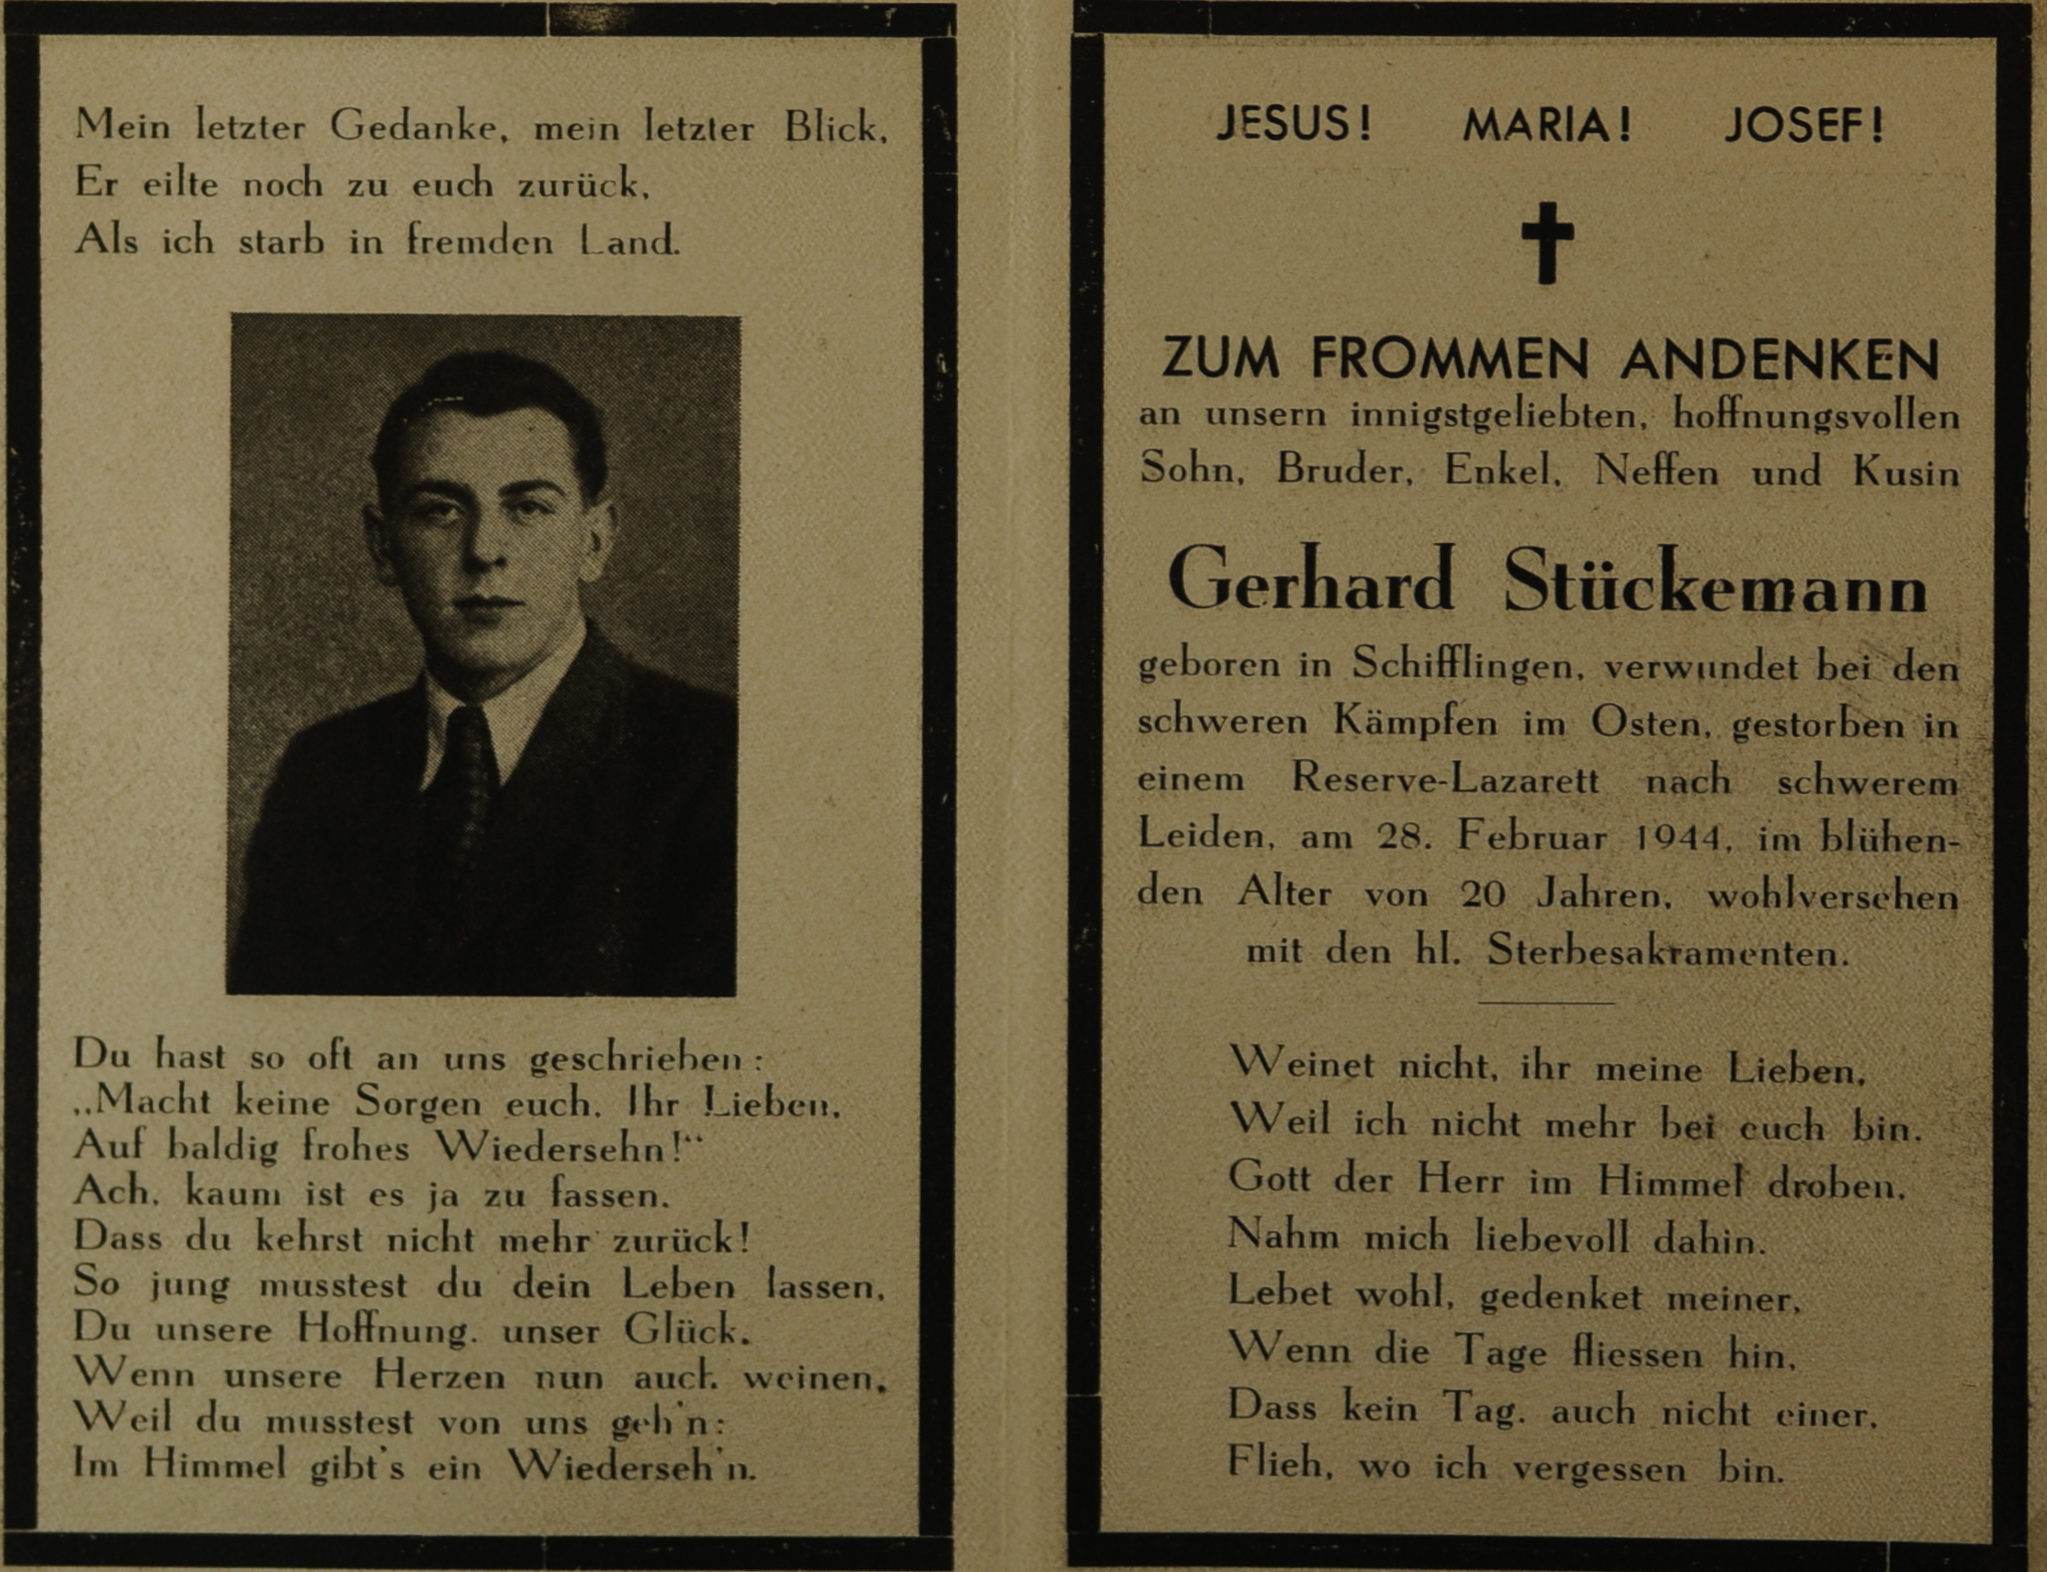 Mein letzter Gedanke, mein letzter Blick,
Er eilte noch zu euch zurück,
Als ich starb in fremden Land.
Du hast so oft an uns geschrieben:
„Macht keine Sorgen euch, Ihr Lieben,
Auf baldig frohes Wiedersehn!“
Ach, kaum ist es ja zu fassen,
Dass du kehrst nicht mehr zurück!
So jung musstest du dein Leben lassen,
Du unsere Hoffnung, unser Glück.
Wenn unsere Herzen nun auch weinen,
Weil du musstest von uns geh'n:
Im Himmel gibt's ein Wiederseh'n.
JESUS! MARIA! JOSEF!
ZUM FROMMEN ANDENKEN
an unsern innigstgeliebten, hoffnungsvollen
Sohn, Bruder, Enkel, Neffen und Kusin
Gerhard Stückemann
geboren in Schifflingen, verwundet bei den
schweren Kämpfen im Osten, gestorben in
einem Reserve-Lazarett nach schwerem
Leiden, am 28. Februar 1944, im blühen-
den Alter von 20 Jahren, wohlversehen
mit den hl. Sterbesakramenten.
Weinet nicht, ihr meine Lieben,
Weil ich nicht mehr bei euch bin.
Gott der Herr im Himmel droben,
Nahm mich liebevoll dahin.
Lebet wohl, gedenket meiner,
Wenn die Tage fliessen hin,
Dass kein Tag, auch nicht einer,
Flieh, wo ich vergessen bin.